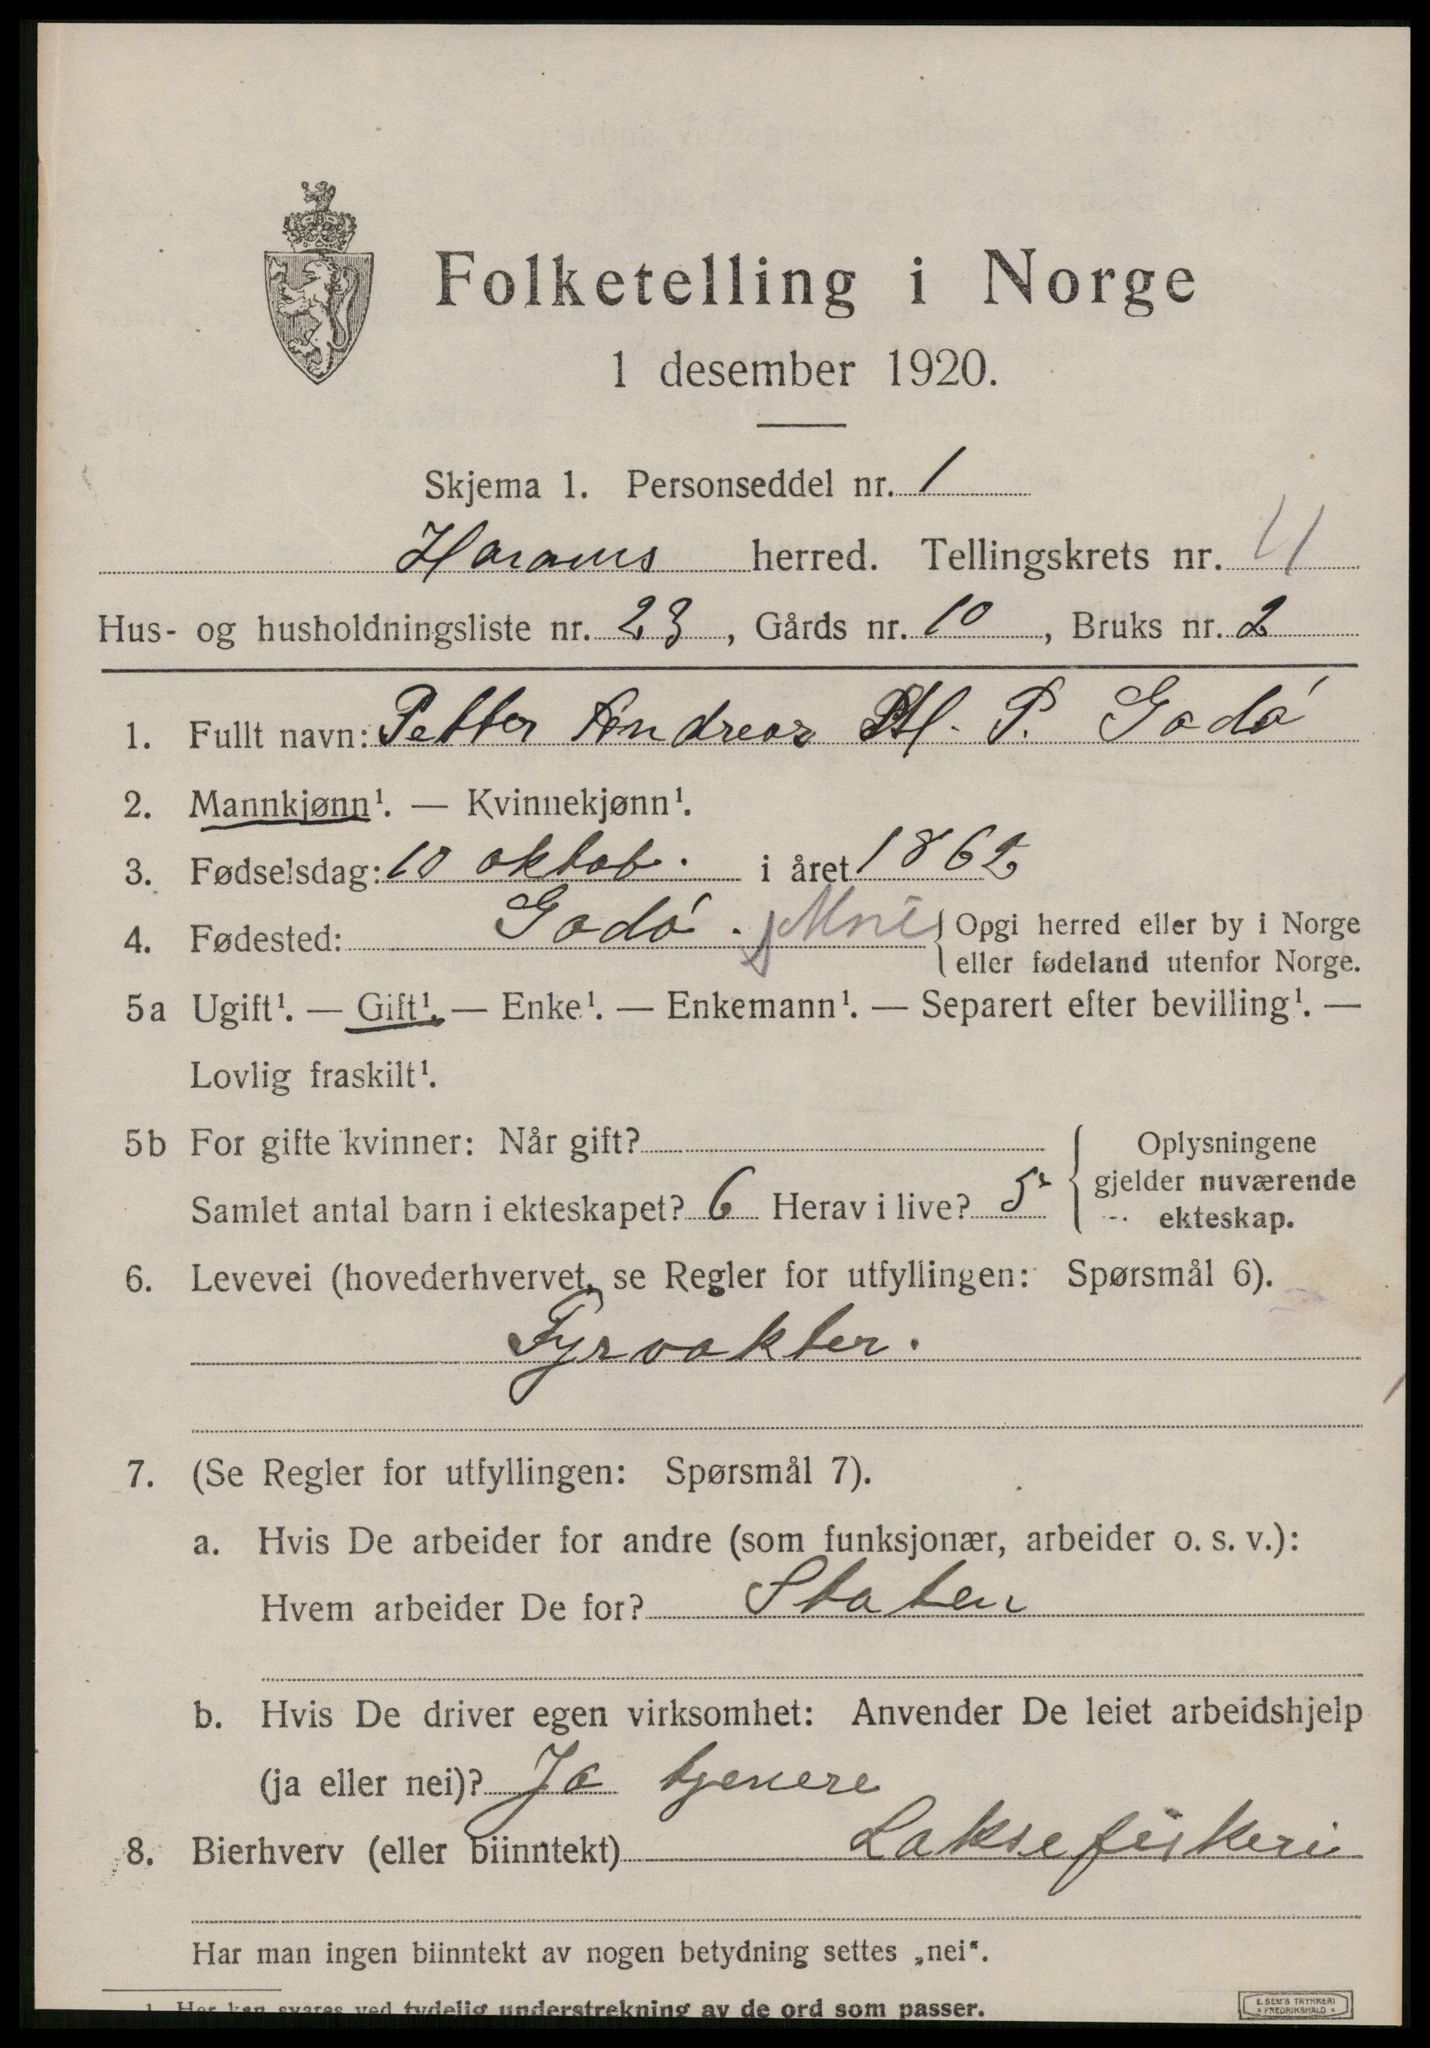 Folketelling i Norge
1 desember 1920.
Skjema 1. Personseddel nr. 1
Harams herred. Tellingskrets nr. 4
Hus- og husholdningsliste nr. 23, Gårds nr. 10, Bruks nr. 2
1. Fullt navn: Petter Andreas M. P. Godó
2. Mannkjønn¹. — Kvinnekjønn¹.
3. Fødselsdag: 10 oktob. i året 1862
4. Fødested: Godó. { Opgi herred eller by i Norge
eller fødeland utenfor Norge.
5a Ugift¹. — Gift¹. — Enke¹. — Enkemann¹. — Separert efter bevilling¹. —
Lovlig fraskilt¹.
5b For gifte kvinner: Når gift? { Oplysningene
gjelder nuværende
Samlet antal barn i ekteskapet? 6 Herav i live? 5
ekteskap.
6. Levevei (hovederhvervet, se Regler for utfyllingen: Spørsmål 6).
Fyrvakter.
7. (Se Regler for utfyllingen: Spørsmål 7).
a. Hvis De arbeider for andre (som funksjonær, arbeider o. s. v.):
Hvem arbeider De for? Staten
b. Hvis De driver egen virksomhet: Anvender De leiet arbeidshjelp
(ja eller nei)? Ja tjenere
8. Bierhverv (eller biinntekt) Laksefiskeri
Har man ingen biinntekt av nogen betydning settes „nei“.
1. Her kan svares ved tydelig understrekning av de ord som passer.
E. SEM'S TRYKKERI
FREDRIKSHALD